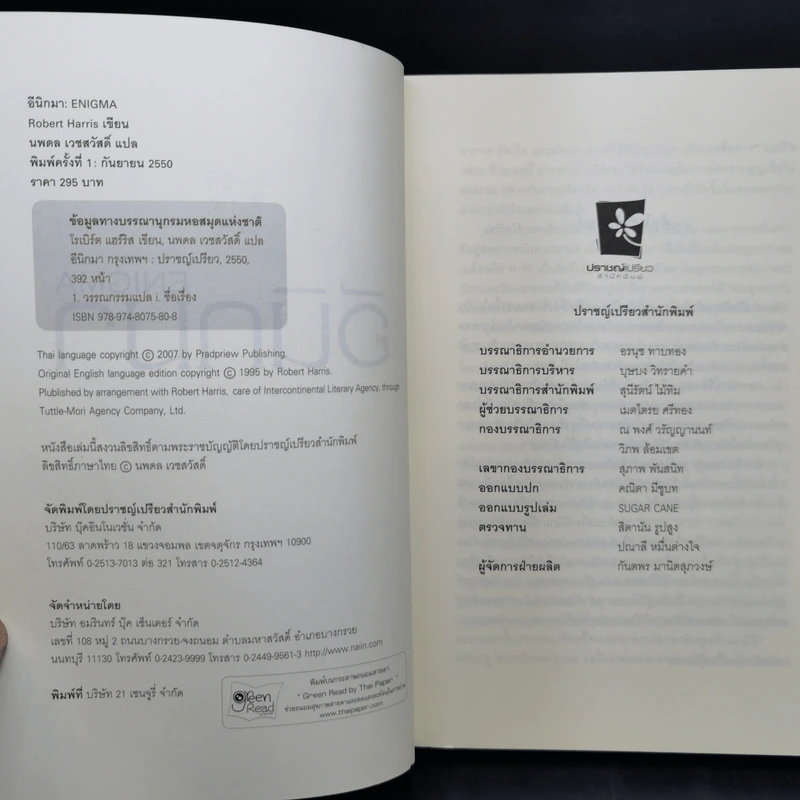 อีนิกมา: ENIGMA
Robert Harris เขียน
นพดล เวชสวัสดิ์ แปล
พิมพ์ครั้งที่ 1: กันยายน 2550
ราคา 295 บาท
ข้อมูลทางบรรณานุกรมหอสมุดแห่งชาติ
โรเบิร์ต แฮร์ริส เขียน, นพดล เวชสวัสดิ์ แปล
อีนิกมา กรุงเทพฯ : ปราชญ์เปรียว, 2550,
392 หน้า
1. วรรณกรรมแปล i. ชื่อเรื่อง
ISBN 978-974-8075-80-8
Thai language copyright © 2007 by Pradpriew Publishing.
Original English language edition copyright © 1995 by Robert Harris.
Plublished by arrangement with Robert Harris, care of Intercontinental Literary Agency, through
Tuttle-Mori Agency Company, Ltd.
หนังสือเล่มนี้สงวนลิขสิทธิ์ตามพระราชบัญญัติโดยปราชญ์เปรียวสำนักพิมพ์
ลิขสิทธิ์ภาษาไทย © นพดล เวชสวัสดิ์
จัดพิมพ์โดยปราชญ์เปรียวสำนักพิมพ์
บริษัท บุ๊คอินโนเวชั่น จำกัด
110/63 ลาดพร้าว 18 แขวงจอมพล เขตจตุจักร กรุงเทพฯ 10900
โทรศัพท์ 0-2513-7013 ต่อ 321 โทรสาร 0-2512-4364
จัดจำหน่ายโดย
บริษัท อมรินทร์ บุ๊ค เซ็นเตอร์ จำกัด
เลขที่ 108 หมู่ 2 ถนนบางกรวย-จงถนอม ตำบลมหาสวัสดิ์ อำเภอบางกรวย
นนทบุรี 11130 โทรศัพท์ 0-2423-9999 โทรสาร 0-2449-9561-3 http://www.naiin.com
พิมพ์ที่ บริษัท 21 เซนจูรี่ จำกัด
green Read
พิมพ์บนกระดาษถนอมสายตา
" Green Read by Thai Paper "
www.thaipaper.com
ปราชญ์เปรียว
สำนักพิมพ์
ปราชญ์เปรียวสำนักพิมพ์
บรรณาธิการอำนวยการ อรนุช ทาบทอง
บรรณาธิการบริหาร บุษบง วิทรายคำ
บรรณาธิการสำนักพิมพ์ สุนีรัตน์ ไม้ทิม
ผู้ช่วยบรรณาธิการ เมตไตรย ศรีทอง
กองบรรณาธิการ ณ พงศ์ วรัญญานนท์
วิภพ ล้อมเขต
เลขากองบรรณาธิการ สุภาพ พันสนิท
ออกแบบปก คณิตา มีชูบท
ออกแบบรูปเล่ม SUGAR CANE
ตรวจทาน สิตานัน รูปสูง
ปณาลี หมื่นต่างใจ
ผู้จัดการฝ่ายผลิต กันตพร มานิตสุภวงษ์